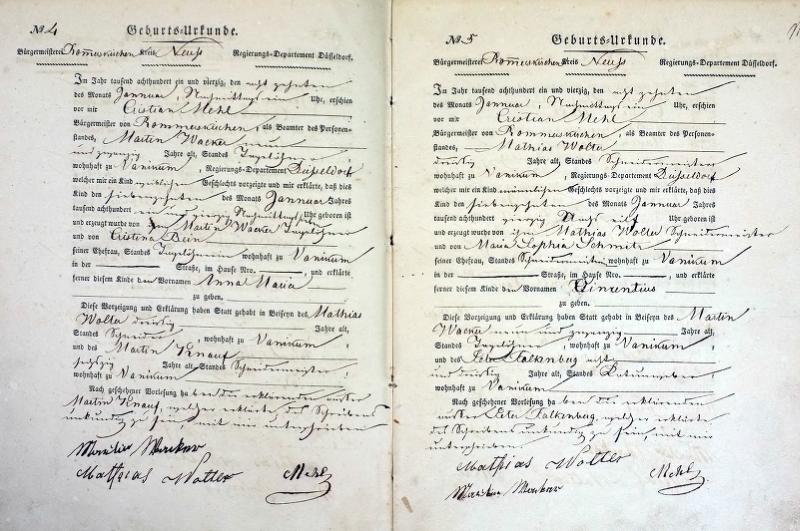 No 4 Geburts-Urkunde.
Bürgermeisterei Rommerskirchen Kreis Neuß Regierungs-Departement Düsseldorf.
Im Jahr tausend achthundert ein und vierzig, den acht zehnten
des Monats Januar, Nachmittags ein Uhr, erschien
vor mir Cristian Mehl
Bürgermeister von Rommerskirchen, als Beamter des Personen-
standes, Martin Wacker neun
und zwanzig Jahre alt, Standes Tagelöhner
wohnhaft zu Vanikum, Regierungs-Departement Düsseldorf
welcher mir ein Kind weiblichen Geschlechts vorzeigte und mir erklärte, daß dies
Kind den siebenzehnten des Monats Januar Jahres
tausend achthundert ein und vierzig Nachmittags Uhr geboren ist
und erzeugt wurde von ihm Martin Wacker Tagelöhner
und von Cristina Bein
seiner Ehefrau, Standes Tagelöhnerin wohnhaft zu Vanikum
in der Straße, im Hause Nro. , und erklärte
ferner diesem Kinde den Vornamen Anna Maria
zu geben.
Diese Vorzeigung und Erklärung haben Statt gehabt in Beiseyn des Mathias
Wolter dreißig Jahre alt,
Standes Schneider, wohnhaft zu Vanikum
und des Martin Knauf
sechszig Jahre alt, Standes Schneidermeister
wohnhaft zu Vanikum
Nach geschehener Vorlesung haben die erklärenden außer
Martin Knauf, welcher erklärte, des Schreibens
unkundig zu sein, mit mir unterschrieben
Martin Wacker
Mathias Wolter Mehl
No 5 Geburts-Urkunde.
Bürgermeisterei Rommerskirchen Kreis Neuß Regierungs-Departement Düsseldorf.
Im Jahr tausend achthundert ein und vierzig, den acht zehnten
des Monats Januar, Nachmittags ein Uhr, erschien
vor mir Cristian Mehl
Bürgermeister von Rommerskirchen, als Beamter des Personen-
standes, Mathias Wolter
dreißig Jahre alt, Standes Schneidermeister
wohnhaft zu Vanikum, Regierungs-Departement Düsseldorf
welcher mir ein Kind männlichen Geschlechts vorzeigte und mir erklärte, daß dies
Kind den siebenzehnten des Monats Januar Jahres
tausend achthundert vierzig Nachts eilf Uhr geboren ist
und erzeugt wurde von ihm Mathias Wolter Schneidermeister
und von Maria Sophia Schmitz
seiner Ehefrau, Standes Schneidermeisterin wohnhaft zu Vanikum
in der Straße, im Hause Nro. , und erklärte
ferner diesem Kinde den Vornamen Vincentius
zu geben.
Diese Vorzeigung und Erklärung haben Statt gehabt in Beiseyn des Martin
Wacker neun und zwanzig Jahre alt,
Standes Tagelöhner, wohnhaft zu Vanikum
und des Peter Falkenbug acht
und dreißig Jahre alt, Standes
wohnhaft zu Vanikum
Nach geschehener Vorlesung haben die erklärenden
außer Peter Falkenbug, welcher erklärte
des Schreibens unkundig zu sein, mit mir
unterschrieben.
Mathias Wolter
Martin Wacker Mehl